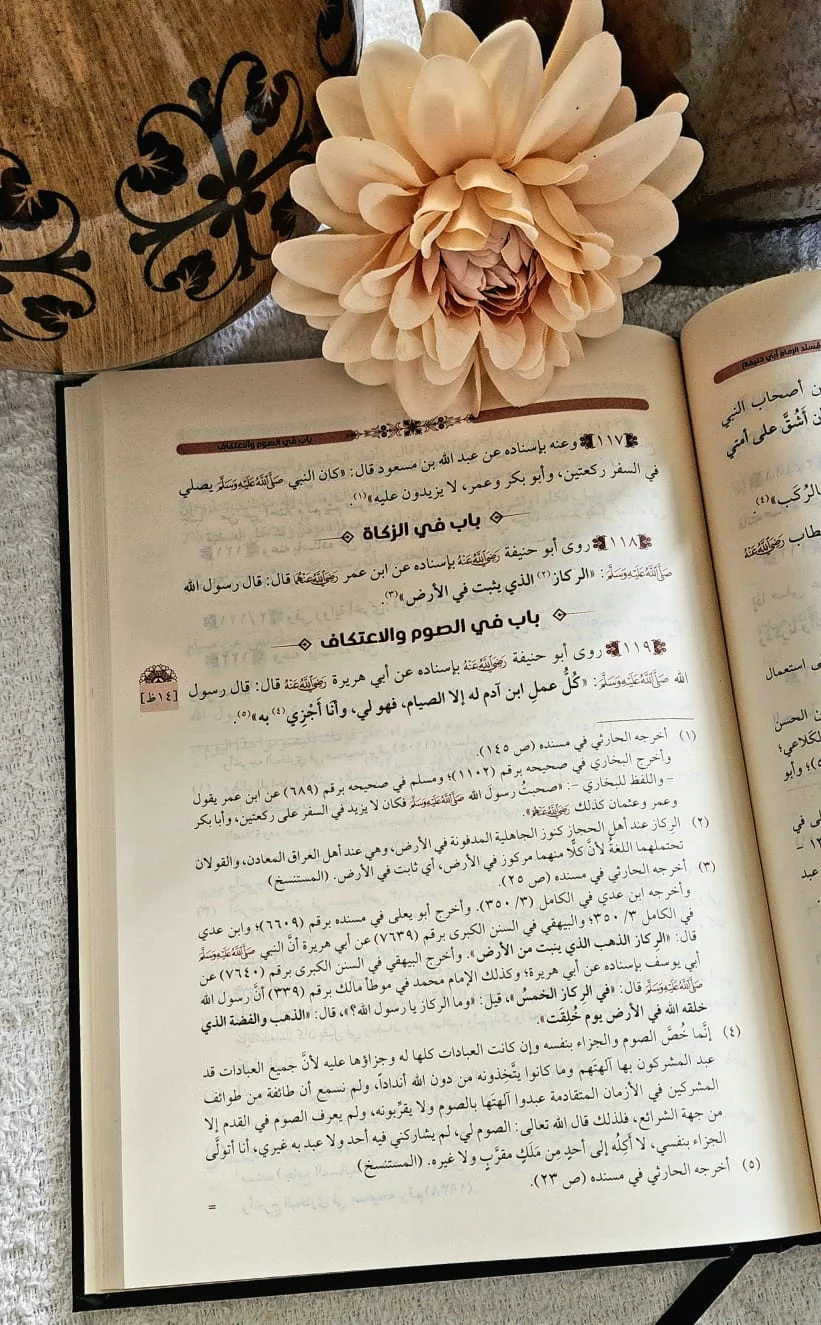 باب في الصوم والاعتكاف
﴿١١٧﴾ وعنه بإسناده عن عبد الله بن مسعود قال: «كان النبي ﷺ يصلي
في السفر ركعتين، وأبو بكر وعمر، لا يزيدون عليه»(١).
باب في الزكاة
﴿١١٨﴾ روى أبو حنيفة رَضِيَ اللَّهُ عَنْهُ بإسناده عن ابن عمر رَضِيَ اللَّهُ عَنْهُمَا قال: قال رسول الله
ﷺ: «الركاز(٢) الذي يثبت في الأرض»(٣).
باب في الصوم والاعتكاف
﴿١١٩﴾ روى أبو حنيفة رَضِيَ اللَّهُ عَنْهُ بإسناده عن أبي هريرة رَضِيَ اللَّهُ عَنْهُ قال: قال رسول
[١٤ظ]
الله ﷺ: «كُلُّ عملِ ابن آدم له إلا الصيام، فهو لي، وأنَا أَجْزِي(٤) به»(٥).
(١) أخرجه الحارثي في مسنده (ص ١٤٥).
وأخرج البخاري في صحيحه برقم (١١٠٢)؛ ومسلم في صحيحه برقم (٦٨٩) عن ابن عمر يقول
- واللفظ للبخاري -: «صحبتُ رسولَ الله ﷺ فكان لا يزيد في السفر على ركعتين، وأبا بكر
وعمر وعثمان كذلك رَضِيَ اللَّهُ عَنْهُمْ».
(٢) الرِكاز عند أهل الحجاز كنوز الجاهلية المدفونة في الأرض، وهي عند أهل العراق المعادن، والقولان
تحتملهما اللغةُ لأنَّ كلًّا منهما مركوز في الأرض، أي ثابت في الأرض. (المستنسخ)
(٣) أخرجه الحارثي في مسنده (ص ٢٥).
وأخرجه ابن عدي في الكامل (٣/ ٣٥٠). وأخرج أبو يعلى في مسنده برقم (٦٦٠٩)؛ وابن عدي
في الكامل ٣/ ٣٥٠؛ والبيهقي في السنن الكبرى برقم (٧٦٣٩) عن أبي هريرة أنَّ النبي ﷺ
قال: «الركاز الذهب الذي ينبت من الأرض». وأخرج البيهقي في السنن الكبرى برقم (٧٦٤٠) عن
أبي يوسف بإسناده عن أبي هريرة؛ وكذلك الإمام محمد في موطأ مالك برقم (٣٣٩) أنَّ رسول الله
ﷺ قال: «في الركاز الخمسُ»، قيل: «وما الركاز يا رسول الله؟»، قال: «الذهب والفضة الذي
خلقه الله في الأرض يوم خُلِقَت».
(٤) إنَّما خُصَّ الصوم والجزاء بنفسه وإن كانت العبادات كلها له وجزاؤها عليه لأنَّ جميع العبادات قد
عبد المشركون بها آلهتَهم وما كانوا يتَّخِذونه من دون الله أنداداً، ولم نسمع أن طائفة من طوائف
المشركين في الأزمان المتقادمة عبدوا آلهتَها بالصوم ولا يقرِّبونه، ولم يعرف الصوم في القدم إلا
من جهة الشرائع، فلذلك قال الله تعالى: الصوم لي، لم يشاركني فيه أحد ولا عبد به غيري، أنا أتولَّى
الجزاء بنفسي، لا أَكِلُه إلى أحدٍ مِن مَلَكٍ مقرَّبٍ ولا غيره. (المستنسخ)
(٥) أخرجه الحارثي في مسنده (ص ٢٣).
=
مسند الإمام أبي حنيفة
أصحاب النبي
أن أَشُقَّ على أمتي
بالرُكَب»(٤).
استعمال
الحسن
الكَلاعي؛
وأبو
في
عبد